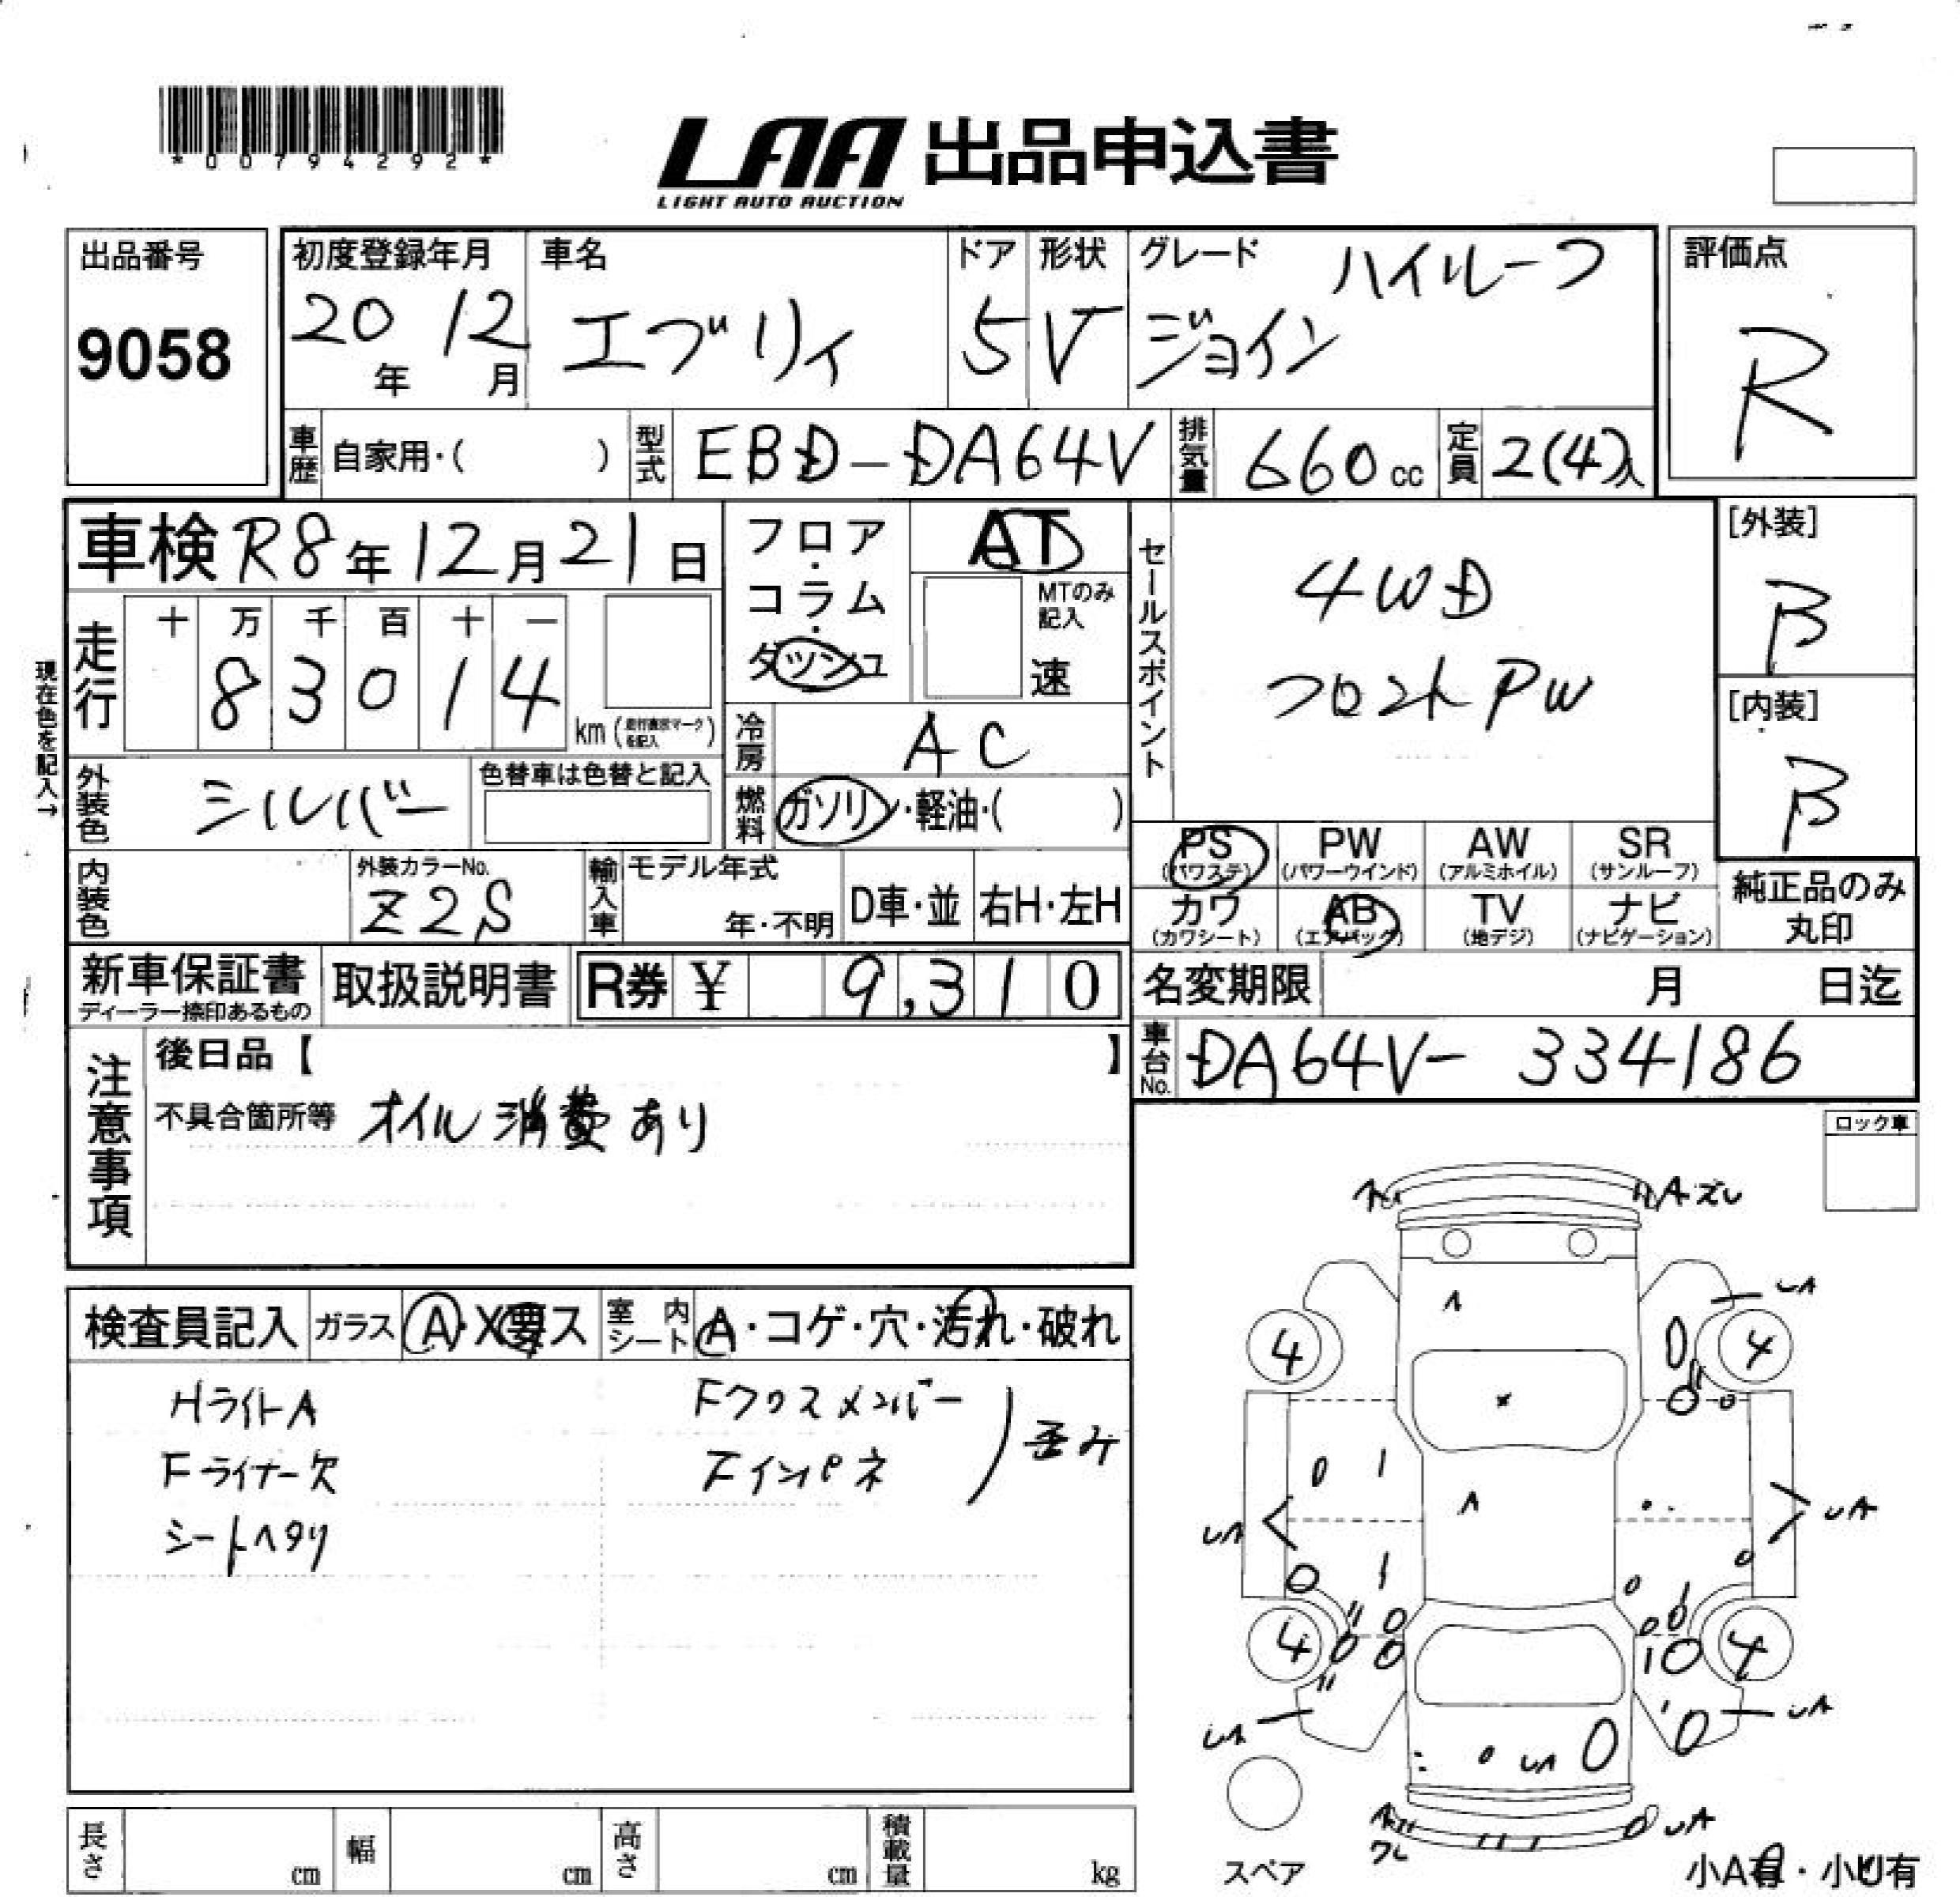 *00794292*
LAA 出品申込書
LIGHT AUTO AUCTION
出品番号
9058
初度登録年月
20年 12月
車名
エブリィ
ドア
5
形状
V
グレード
ハイルーフ
ジョイン
評価点
R
車歴 自家用・( )
型式 EBD-DA64V
排気量 660cc
定員 2(4)人
車検 R8年12月21日
フロア・コラム・ダッシュ
AT
MTのみ記入
速
セールスポイント
4WD
フロントPW
[外装]
B
[内装]
B
現在色を記入→
走行
十 万 千 百 十 一
8 3 0 1 4
km (走行直示マークを記入)
冷房 AC
外装色 シルバー
色替車は色替と記入
燃料 ガソリン・軽油・( )
内装色
外装カラーNo.
Z2S
輸入車
モデル年式
年・不明
D車・並
右H・左H
PS (パワステ)
PW (パワーウインド)
AW (アルミホイル)
SR (サンルーフ)
カワ (カワシート)
AB (エアバッグ)
TV (地デジ)
ナビ (ナビゲーション)
純正品のみ
丸印
新車保証書
ディーラー捺印あるもの
取扱説明書
R券 ¥ 9,310
名変期限 月 日迄
車台No. DA64V-334186
注意事項
後日品【 】
不具合箇所等 オイル消費あり
ロック車
検査員記入
ガラス A・X要ス
室内シート A・コゲ・穴・汚れ・破れ
HライトA
Fライナー欠
シートヘタリ
Fクロスメンバー
Fインパネ
歪み
Aズレ
UA
4
4
UA
UA
4
4
UA
UA
UA
UA
ワレ
スペア
小A有・小U有
長さ cm
幅 cm
高さ cm
積載量 kg